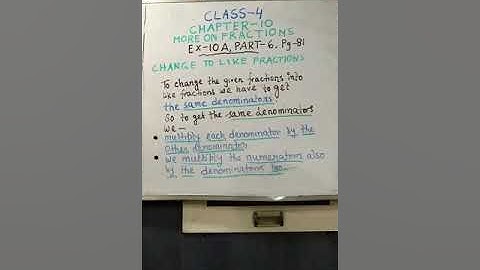 CLASS-4
CHAPTER-10
MORE ON FRACTIONS
EX-10A, PART-6, Pg-81
CHANGE TO LIKE FRACTIONS
To change the given fractions into
like fractions we have to get
the same denominators.
So to get the same denominators
we —
• multiply each denominator by the
other denominator
• we multiply the numerators also
by the denominators too.